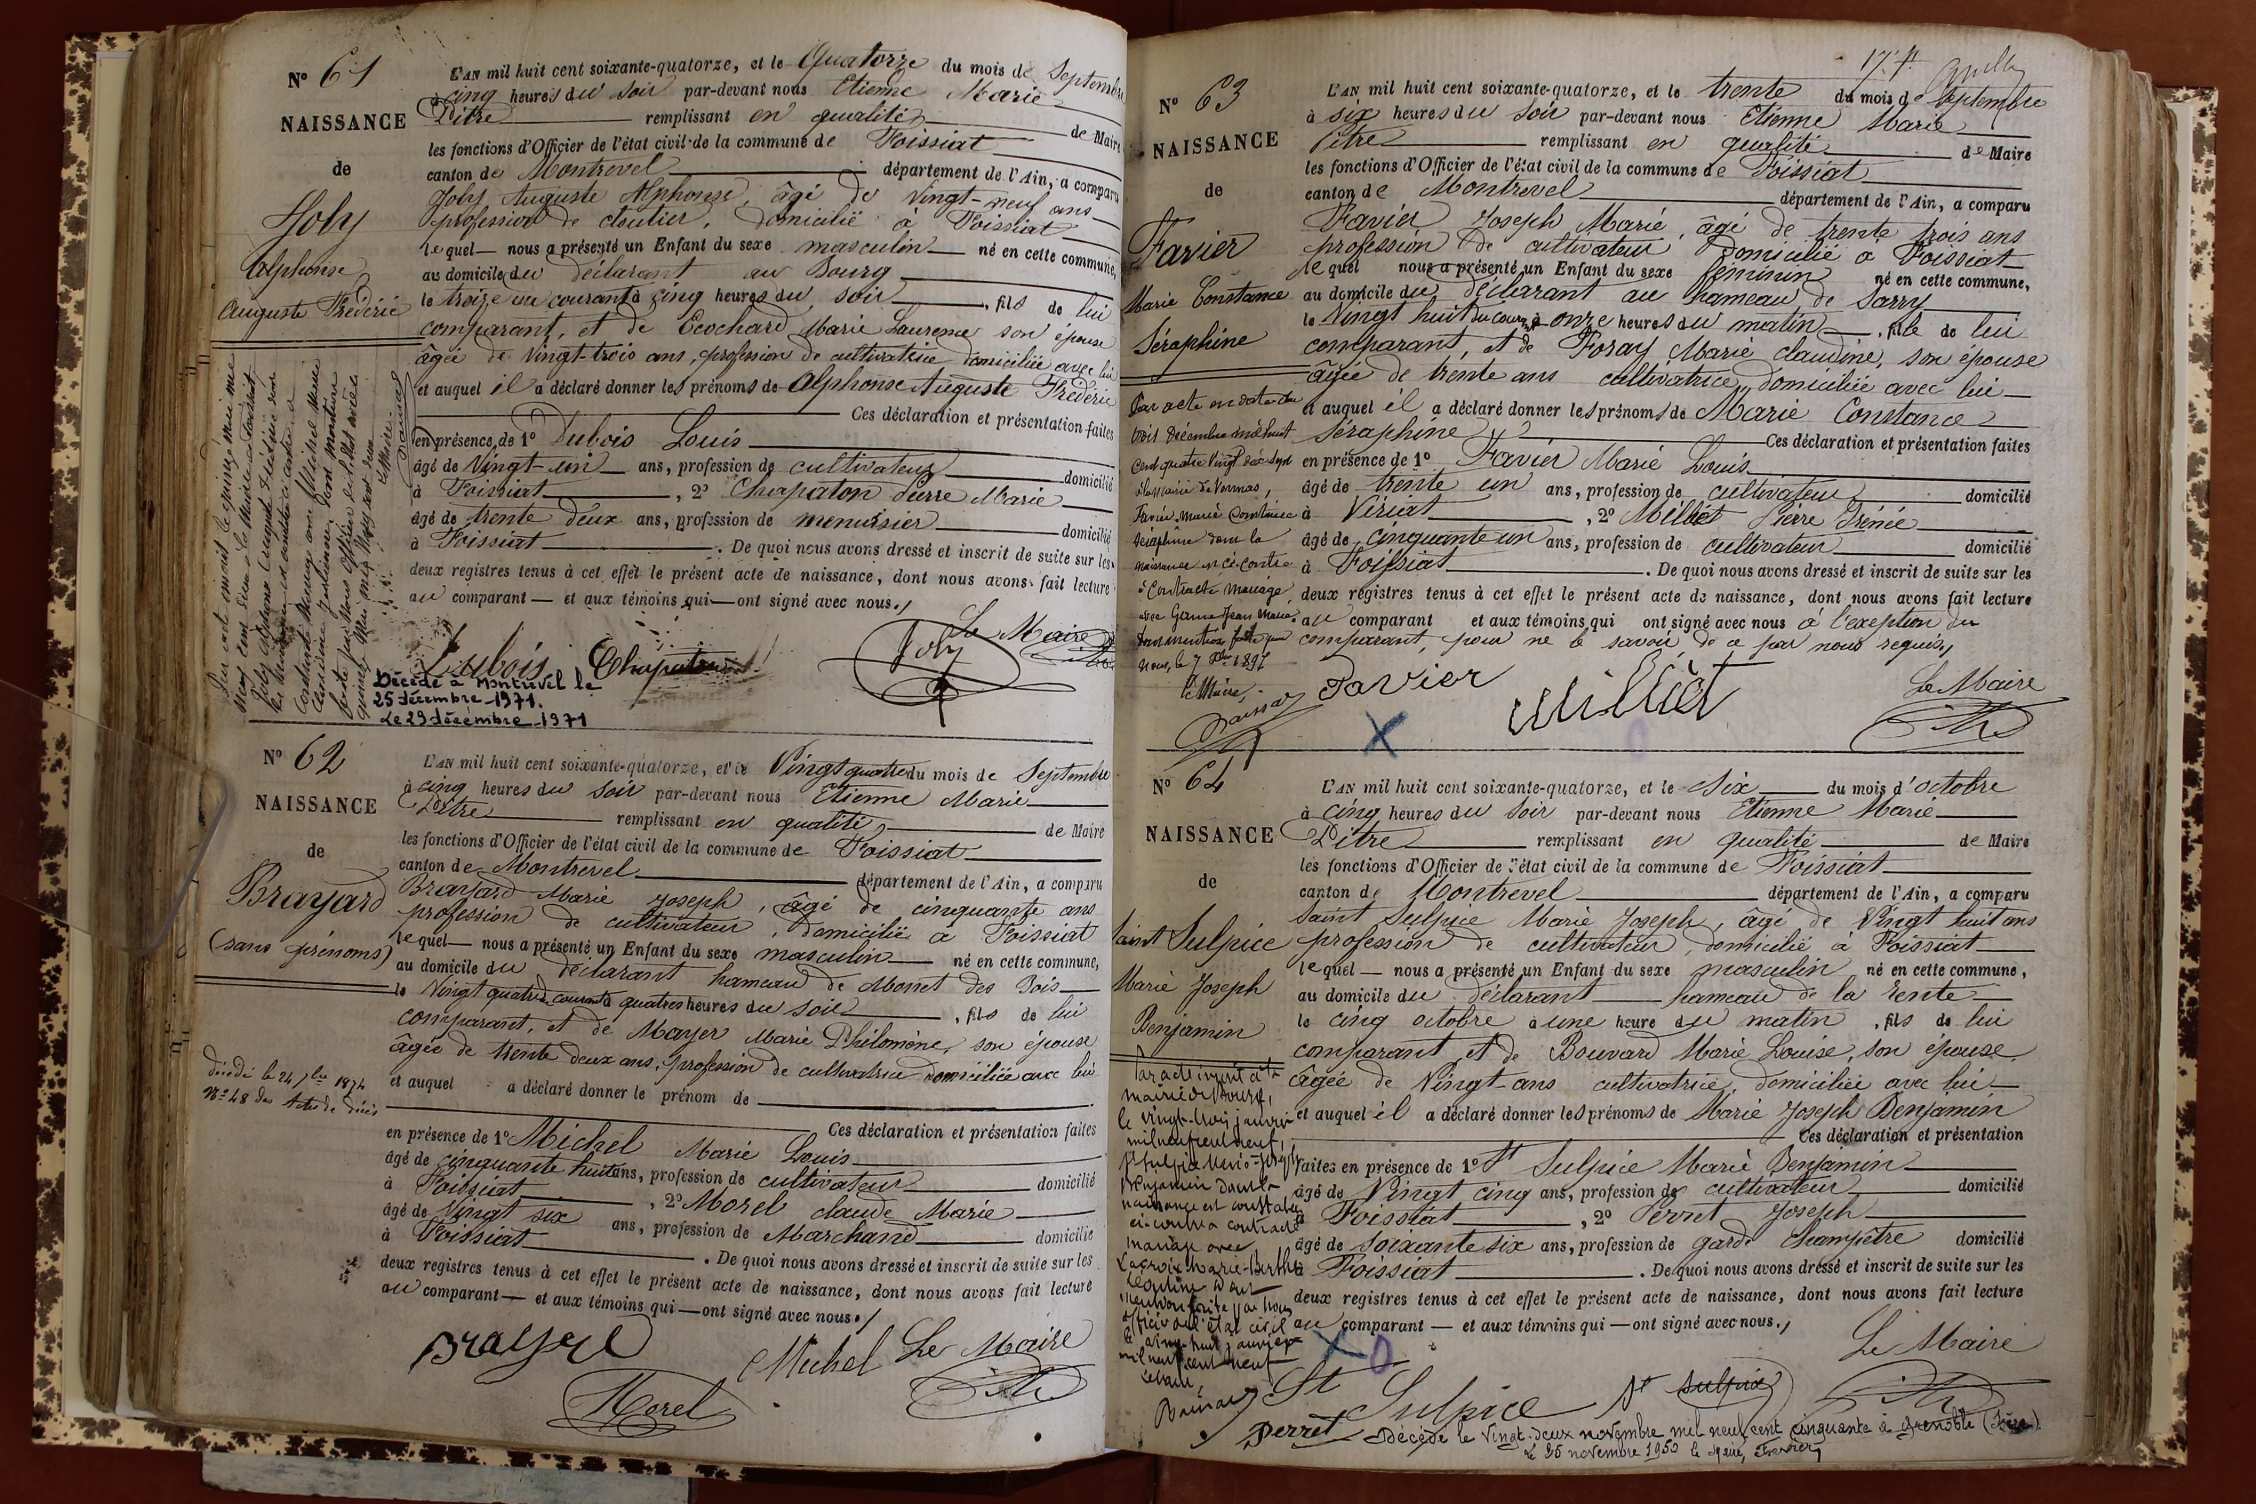 N° 61
NAISSANCE
de
Joly
Alphonse
Auguste Frédéric
L'AN mil huit cent soixante-quatorze, et le Quatorze du mois de Septembre
à cinq heures du soir par-devant nous Etienne Marie
Pitre remplissant en qualité de Maire
les fonctions d'Officier de l'état civil de la commune de Foissiat
canton de Montrevel département de l'Ain, a comparu
Joly Auguste Alphonse, âgé de Vingt-neuf ans
profession de cloutier, domicilié à Foissiat
lequel nous a présenté un Enfant du sexe masculin né en cette commune,
au domicile du déclarant au Bourg
le treize du courant à cinq heures du soir, fils de lui
comparant, et de Ecochard Marie Laurence son épouse
âgée de Vingt-trois ans, profession de cultivatrice domiciliée avec lui
et auquel il a déclaré donner les prénoms de Alphonse Auguste Frédéric
Ces déclaration et présentation faites
en présence de 1° Dubois Louis
âgé de Vingt-un ans, profession de cultivateur domicilié
à Foissiat, 2° Chapaton Pierre Marie
âgé de trente deux ans, profession de menuisier domicilié
à Foissiat. De quoi nous avons dressé et inscrit de suite sur les
deux registres tenus à cet effet le présent acte de naissance, dont nous avons fait lecture
au comparant — et aux témoins qui — ont signé avec nous.
Le Maire
Dubois Chapaton Joly
Décédé à Montrevel le
25 décembre 1971.
Le 29 décembre 1971
N° 62
NAISSANCE
de
Brayard
(sans prénoms)
décédé le 24 7bre 1874
N° 48 des Actes de décès
L'AN mil huit cent soixante-quatorze, et le Vingt quatre du mois de Septembre
à cinq heures du soir par-devant nous Etienne Marie
Pitre remplissant en qualité de Maire
les fonctions d'Officier de l'état civil de la commune de Foissiat
canton de Montrevel département de l'Ain, a comparu
Brayard Marie Joseph, âgé de cinquante ans
profession de cultivateur, domicilié à Foissiat
lequel — nous a présenté un Enfant du sexe masculin né en cette commune,
au domicile du déclarant hameau de Monet des Bois
le Vingt quatre courant à quatre heures du soir, fils de lui
comparant, et de Mayer Marie Philomène, son épouse
âgée de trente deux ans, profession de cultivatrice domiciliée avec lui
et auquel a déclaré donner le prénom de
Ces déclaration et présentation faites
en présence de 1° Michel Marie Louis
âgé de cinquante huit ans, profession de cultivateur domicilié
à Foissiat, 2° Morel claude Marie
âgé de Vingt six ans, profession de Marchand domicilié
à Foissiat. De quoi nous avons dressé et inscrit de suite sur les
deux registres tenus à cet effet le présent acte de naissance, dont nous avons fait lecture
au comparant — et aux témoins qui — ont signé avec nous.
Brayard Michel Le Maire
Morel
N° 63
NAISSANCE
de
Favier
Marie Constance
Séraphine
Par acte en date du
trois Décembre mil huit
cent quatre Vingt dix-sept
à la mairie de Vonnas,
Favier Marie Constance
Séraphine dont la
naissance est ci-contre
a contracté mariage
nous, le 7 Xbre 1897
le Maire,
L'AN mil huit cent soixante-quatorze, et le trente du mois de Septembre
à six heures du soir par-devant nous Etienne Marie
Pitre remplissant en qualité de Maire
les fonctions d'Officier de l'état civil de la commune de Foissiat
canton de Montrevel département de l'Ain, a comparu
Favier Joseph Marie, âgé de trente trois ans
profession de cultivateur domicilié à Foissiat
lequel nous a présenté un Enfant du sexe féminin né en cette commune,
au domicile du déclarant au hameau de Sarry
le Vingt huit du courant à onze heures du matin, fille de lui
comparant, et de Foray Marie claudine, son épouse
âgée de trente ans cultivatrice domiciliée avec lui
et auquel il a déclaré donner les prénoms de Marie Constance
Séraphine Ces déclaration et présentation faites
en présence de 1° Favier Marie Louis
âgé de trente un ans, profession de cultivateur domicilié
à Viriat, 2° Milliet Pierre Irénée
âgé de cinquante un ans, profession de cultivateur domicilié
à Foissiat. De quoi nous avons dressé et inscrit de suite sur les
deux registres tenus à cet effet le présent acte de naissance, dont nous avons fait lecture
au comparant et aux témoins qui ont signé avec nous à l'exeption du
comparant, pour ne le savoir, de ce par nous requis,
Favier Milliet Le Maire
N° 64
NAISSANCE
de
Saint Sulpice
Marie Joseph
Benjamin
Par acte inscrit à la
mairie de Bourg,
le vingt-trois janvier
mil neuf cent neuf,
St Sulpice Marie-Joseph
Benjamin dont la
naissance est constatée
ci-contre a contracté
mariage avec
Lacroix Marie-Berthe
mil neuf cent neuf
L'AN mil huit cent soixante-quatorze, et le Six du mois d'octobre
à cinq heures du soir par-devant nous Etienne Marie
Pitre remplissant en qualité de Maire
les fonctions d'Officier de l'état civil de la commune de Foissiat
canton de Montrevel département de l'Ain, a comparu
Saint Sulpice Marie Joseph, âgé de Vingt huit ans
profession de cultivateur, domicilié à Foissiat
lequel — nous a présenté un Enfant du sexe masculin né en cette commune,
au domicile du déclarant hameau de la Tente
le cinq octobre à une heure du matin, fils de lui
comparant et de Bouvard Marie Louise, son épouse
âgée de Vingt ans cultivatrice, domiciliée avec lui
et auquel il a déclaré donner les prénoms de Marie Joseph Benjamin
Ces déclaration et présentation
faites en présence de 1° St Sulpice Marie Benjamin
âgé de Vingt cinq ans, profession de cultivateur domicilié
à Foissiat, 2° Perret Joseph
âgé de soixante six ans, profession de garde champêtre domicilié
à Foissiat. De quoi nous avons dressé et inscrit de suite sur les
deux registres tenus à cet effet le présent acte de naissance, dont nous avons fait lecture
au comparant — et aux témoins qui — ont signé avec nous.
Le Maire
St Sulpice St Sulpice
Perret
Décédé le Vingt-deux novembre mil neuf cent cinquante à Grenoble (Isère)
Le 25 novembre 1950 le Maire,